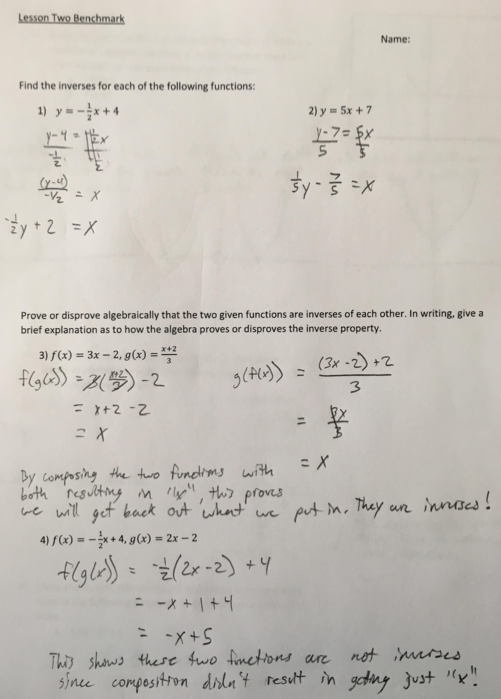 Lesson Two Benchmark
Name:
Find the inverses for each of the following functions:
1) y = -1/2 x + 4
2) y = 5x + 7
y-4 = -1/2 x
-1/2 -1/2
(y-4)/-1/2 = x
-1/2 y + 2 = x
y-7 = 5x
5 5
1/5 y - 7/5 = x
Prove or disprove algebraically that the two given functions are inverses of each other. In writing, give a
brief explanation as to how the algebra proves or disproves the inverse property.
3) f(x) = 3x – 2, g(x) = x+2/3
f(g(x)) = 3(x+2/3) - 2
= x+2 - 2
= x
g(f(x)) = (3x-2)+2/3
= 3x/3
= x
By composing the two functions with
both resulting in "x", this proves
we will get back out what we put in. They are inverses!
4) f(x) = -1/2 x + 4, g(x) = 2x – 2
f(g(x)) = -1/2(2x-2) + 4
= -x + 1 + 4
= -x + 5
This shows these two functions are not inverses
since composition didn't result in getting just "x"!